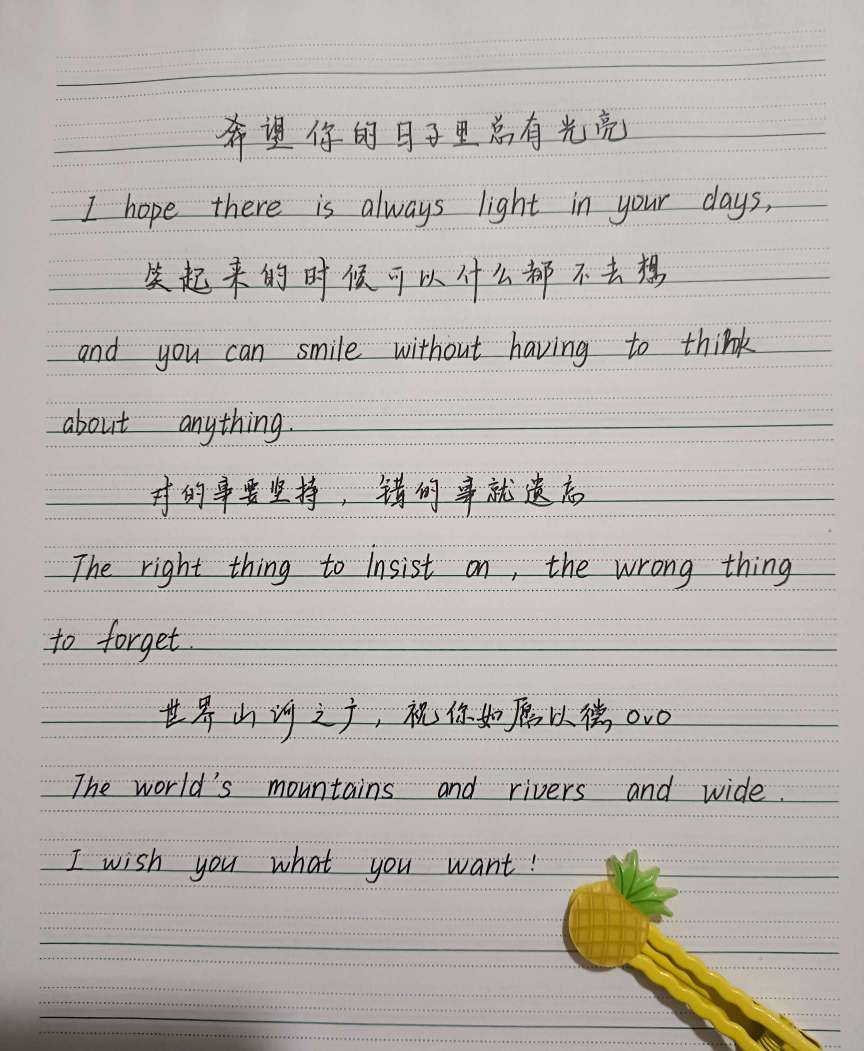 希望你的日子里总有光亮
I hope there is always light in your days,
笑起来的时候可以什么都不去想
and you can smile without having to think
about anything.
对的事要坚持，错的事就遗忘
The right thing to insist on, the wrong thing
to forget.
世界山河之广，祝你如愿以偿 OvO
The world's mountains and rivers and wide.
I wish you what you want!